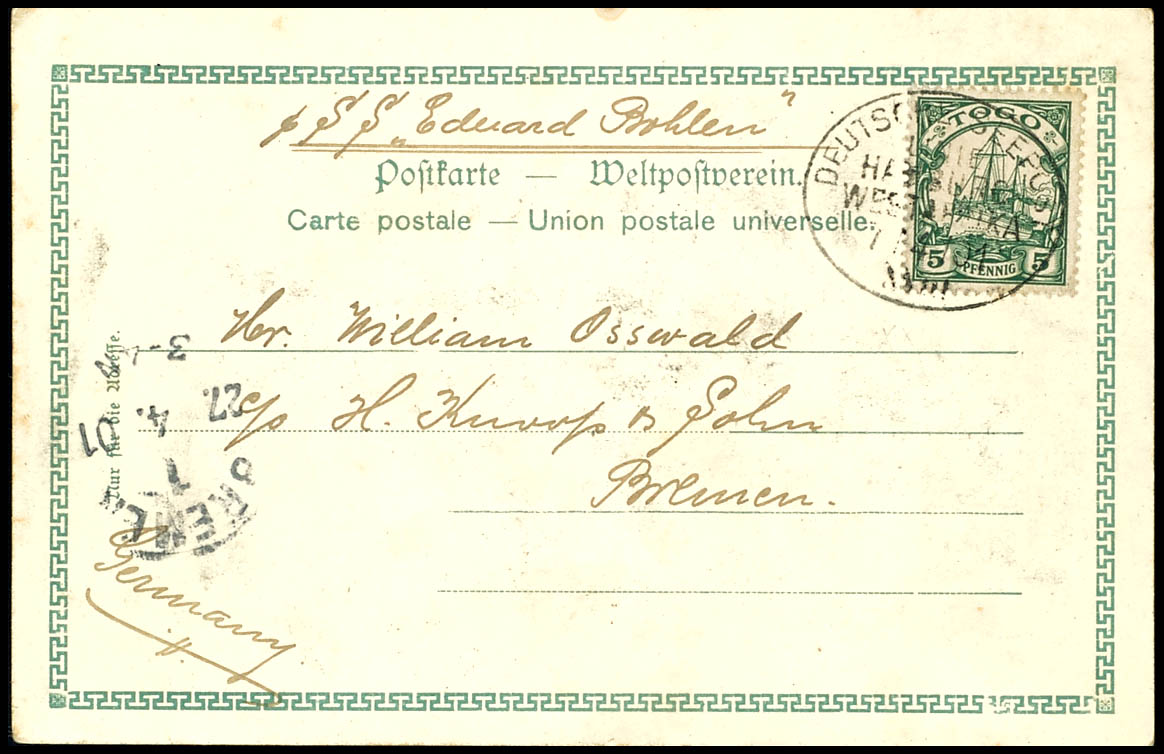 p SS „Eduard Bohlen"
Postkarte — Weltpostverein.
Carte postale — Union postale universelle.
TOGO
5 PFENNIG 5
DEUTSCHE SEEPOST
LINIE
HAMBURG-
WESTAFRIKA
XXIII
Hr. William Osswald
c/o H. Knoop & Sohn
Bremen.
Nur für die Adresse.
BREMEN
1
27. 4. 01
Germany